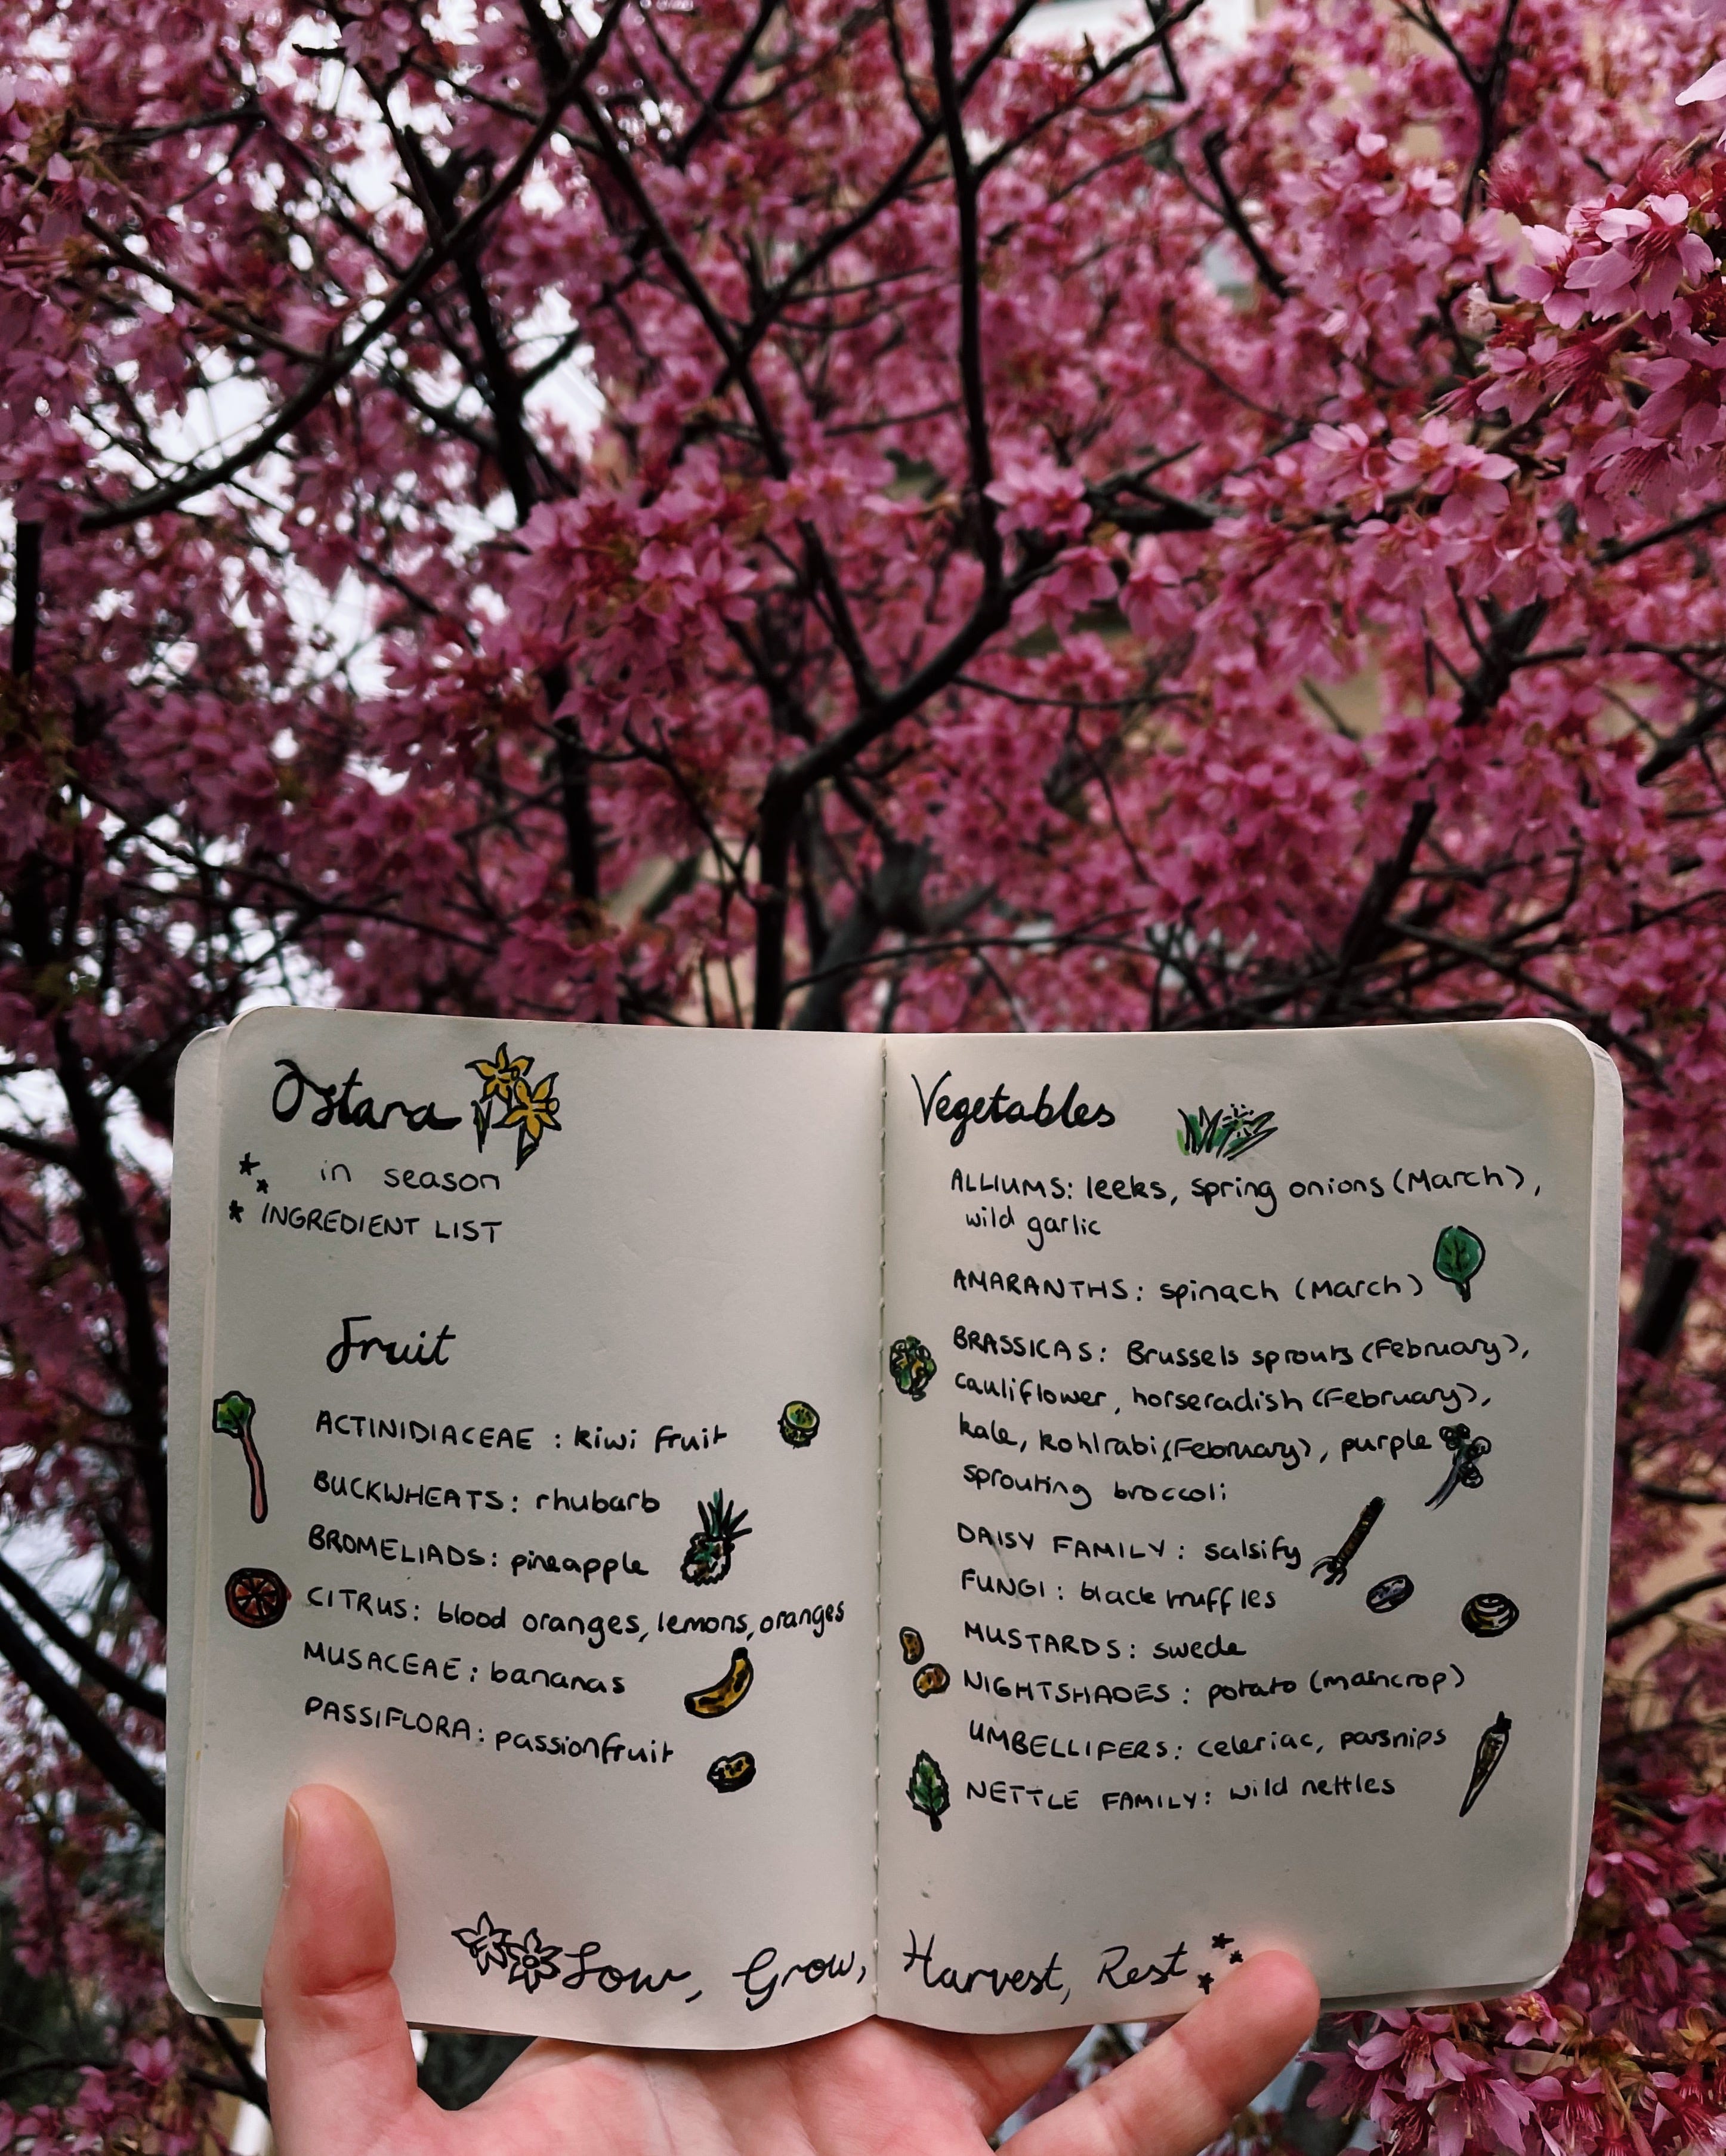 Ostara
in season
INGREDIENT LIST
Fruit
ACTINIDIACEAE : kiwi fruit
BUCKWHEATS: rhubarb
BROMELIADS: pineapple
CITRUS: blood oranges, lemons, oranges
MUSACEAE: bananas
PASSIFLORA: passionfruit
Vegetables
ALLIUMS: leeks, spring onions (March),
wild garlic
AMARANTHS: spinach (March)
BRASSICAS: Brussels sprouts (February),
cauliflower, horseradish (February),
kale, kohlrabi (February), purple
sprouting broccoli
DAISY FAMILY: salsify
FUNGI: black truffles
MUSTARDS: swede
NIGHTSHADES: potato (maincrop)
UMBELLIFERS: celeriac, parsnips
NETTLE FAMILY: wild nettles
Sow, Grow, Harvest, Rest